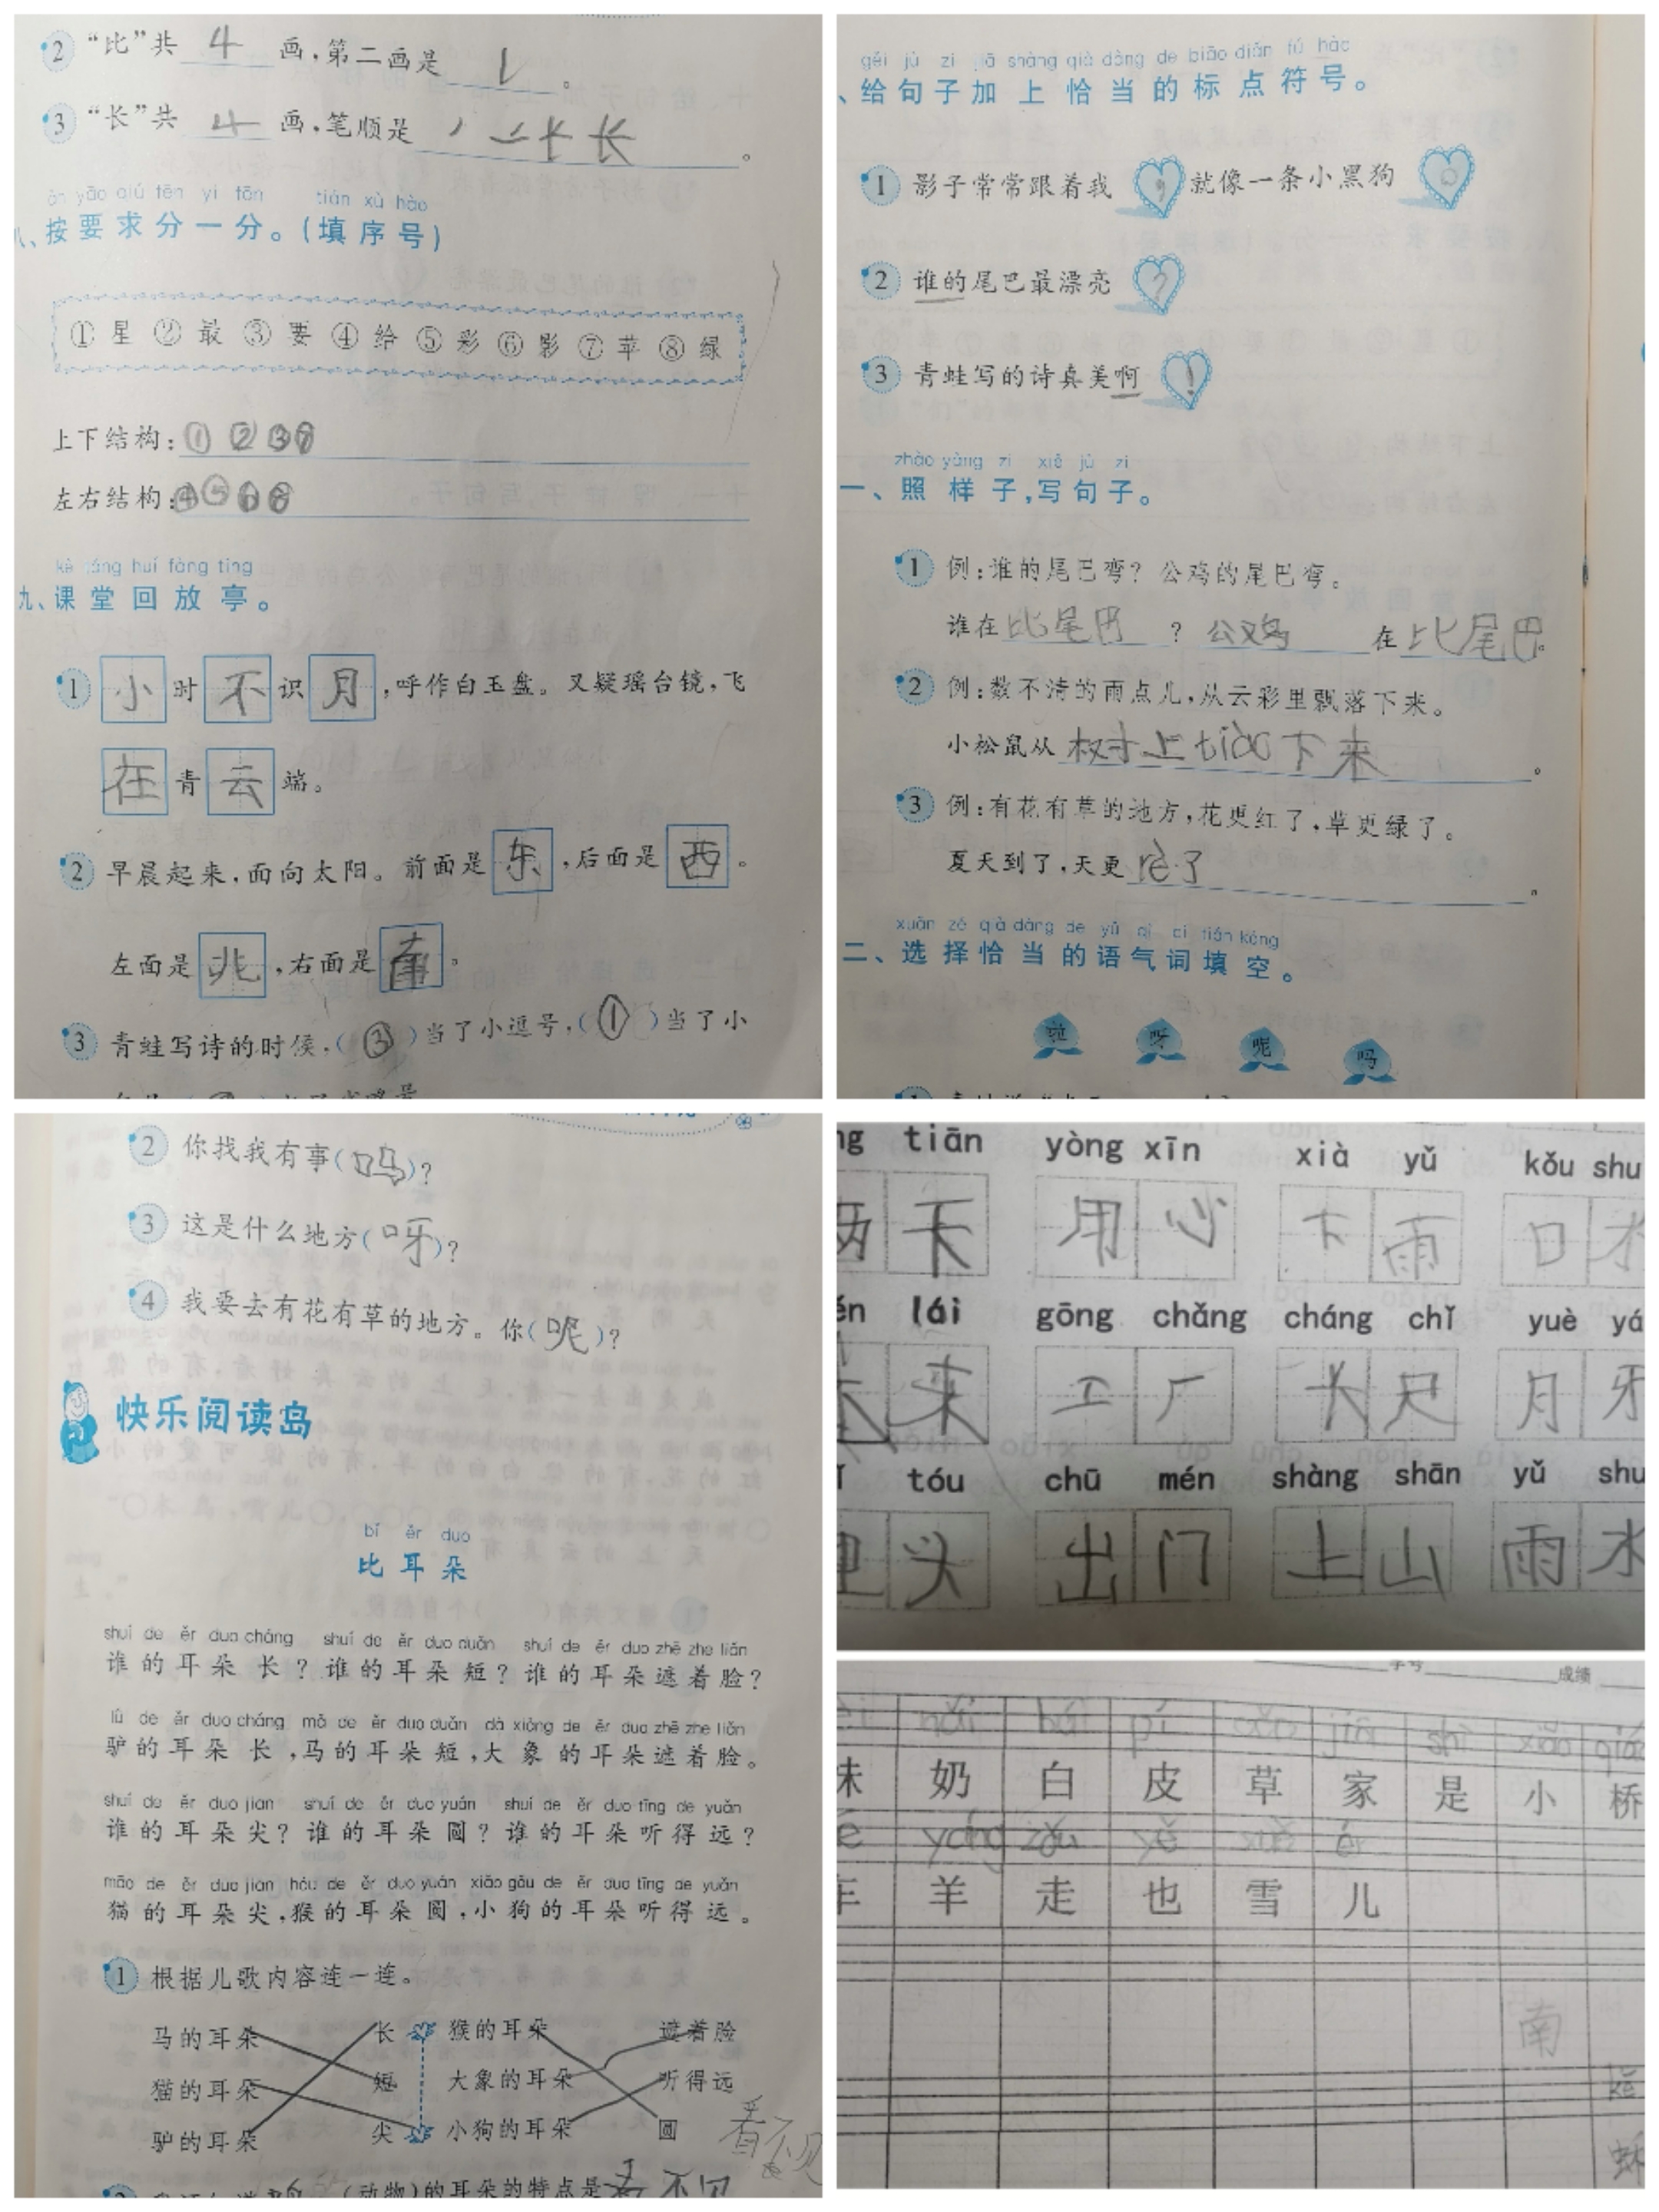 2 “比”共 4 画，第二画是 ㇄ 。
3 “长”共 4 画，笔顺是 长 。
àn yāo qiú fēn yi fēn tián xù hào
八、按要求分一分。(填序号)
①星 ②最 ③要 ④给 ⑤彩 ⑥影 ⑦苹 ⑧绿
上下结构：① ② ③ ⑦
左右结构：④ ⑤ ⑥ ⑧
kè táng huí fàng tíng
九、课堂回放亭。
1 小时不识月，呼作白玉盘。又疑瑶台镜，飞
在青云端。
2 早晨起来，面向太阳。前面是东，后面是西。
左面是北，右面是南。
3 青蛙写诗的时候，( ③ )当了小逗号，( ① )当了小
gěi jù zi jiā shàng qià dàng de biāo diǎn fú hào
、给句子加上恰当的标点符号。
1 影子常常跟着我，就像一条小黑狗。
2 谁的尾巴最漂亮？
3 青蛙写的诗真美啊！
zhào yàng zi xiě jù zi
一、照样子，写句子。
1 例：谁的尾巴弯？公鸡的尾巴弯。
谁在比尾巴？公鸡在比尾巴。
2 例：数不清的雨点儿，从云彩里飘落下来。
小松鼠从树上tiào下来。
3 例：有花有草的地方，花更红了，草更绿了。
夏天到了，天更 了。
xuǎn zé qià dàng de yǔ qì cí tián kòng
二、选择恰当的语气词填空。
啦 呀 呢 吗
2 你找我有事(吗)？
3 这是什么地方(呀)？
4 我要去有花有草的地方。你(呢)？
快乐阅读岛
bǐ ěr duo
比耳朵
shuí de ěr duo cháng shuí de ěr duo duǎn shuí de ěr duo zhē zhe liǎn
谁的耳朵长？谁的耳朵短？谁的耳朵遮着脸？
lǘ de ěr duo cháng mǎ de ěr duo duǎn dà xiàng de ěr duo zhē zhe liǎn
驴的耳朵长，马的耳朵短，大象的耳朵遮着脸。
shuí de ěr duo jiān shuí de ěr duo yuán shuí de ěr duo tīng de yuǎn
谁的耳朵尖？谁的耳朵圆？谁的耳朵听得远？
māo de ěr duo jiān hóu de ěr duo yuán xiǎo gǒu de ěr duo tīng de yuǎn
猫的耳朵尖，猴的耳朵圆，小狗的耳朵听得远。
1 根据儿歌内容连一连。
马的耳朵 长 猴的耳朵 遮着脸
猫的耳朵 短 大象的耳朵 听得远
驴的耳朵 尖 小狗的耳朵 圆
看不见
(动物)的耳朵的特点是看不见
ng tiān yòng xīn xià yǔ kǒu shu
两天 用心 下雨 口水
én lái gōng chǎng cháng chǐ yuè yá
来 工厂 长尺 月牙
tóu chū mén shàng shān yǔ shu
里头 出门 上山 雨水
学号 成绩
nǎi bái pí cǎo jiā shì xiǎo qiáo
妹 奶 白 皮 草 家 是 小 桥
yáng zǒu yě xuě ér
车 羊 走 也 雪 儿
南